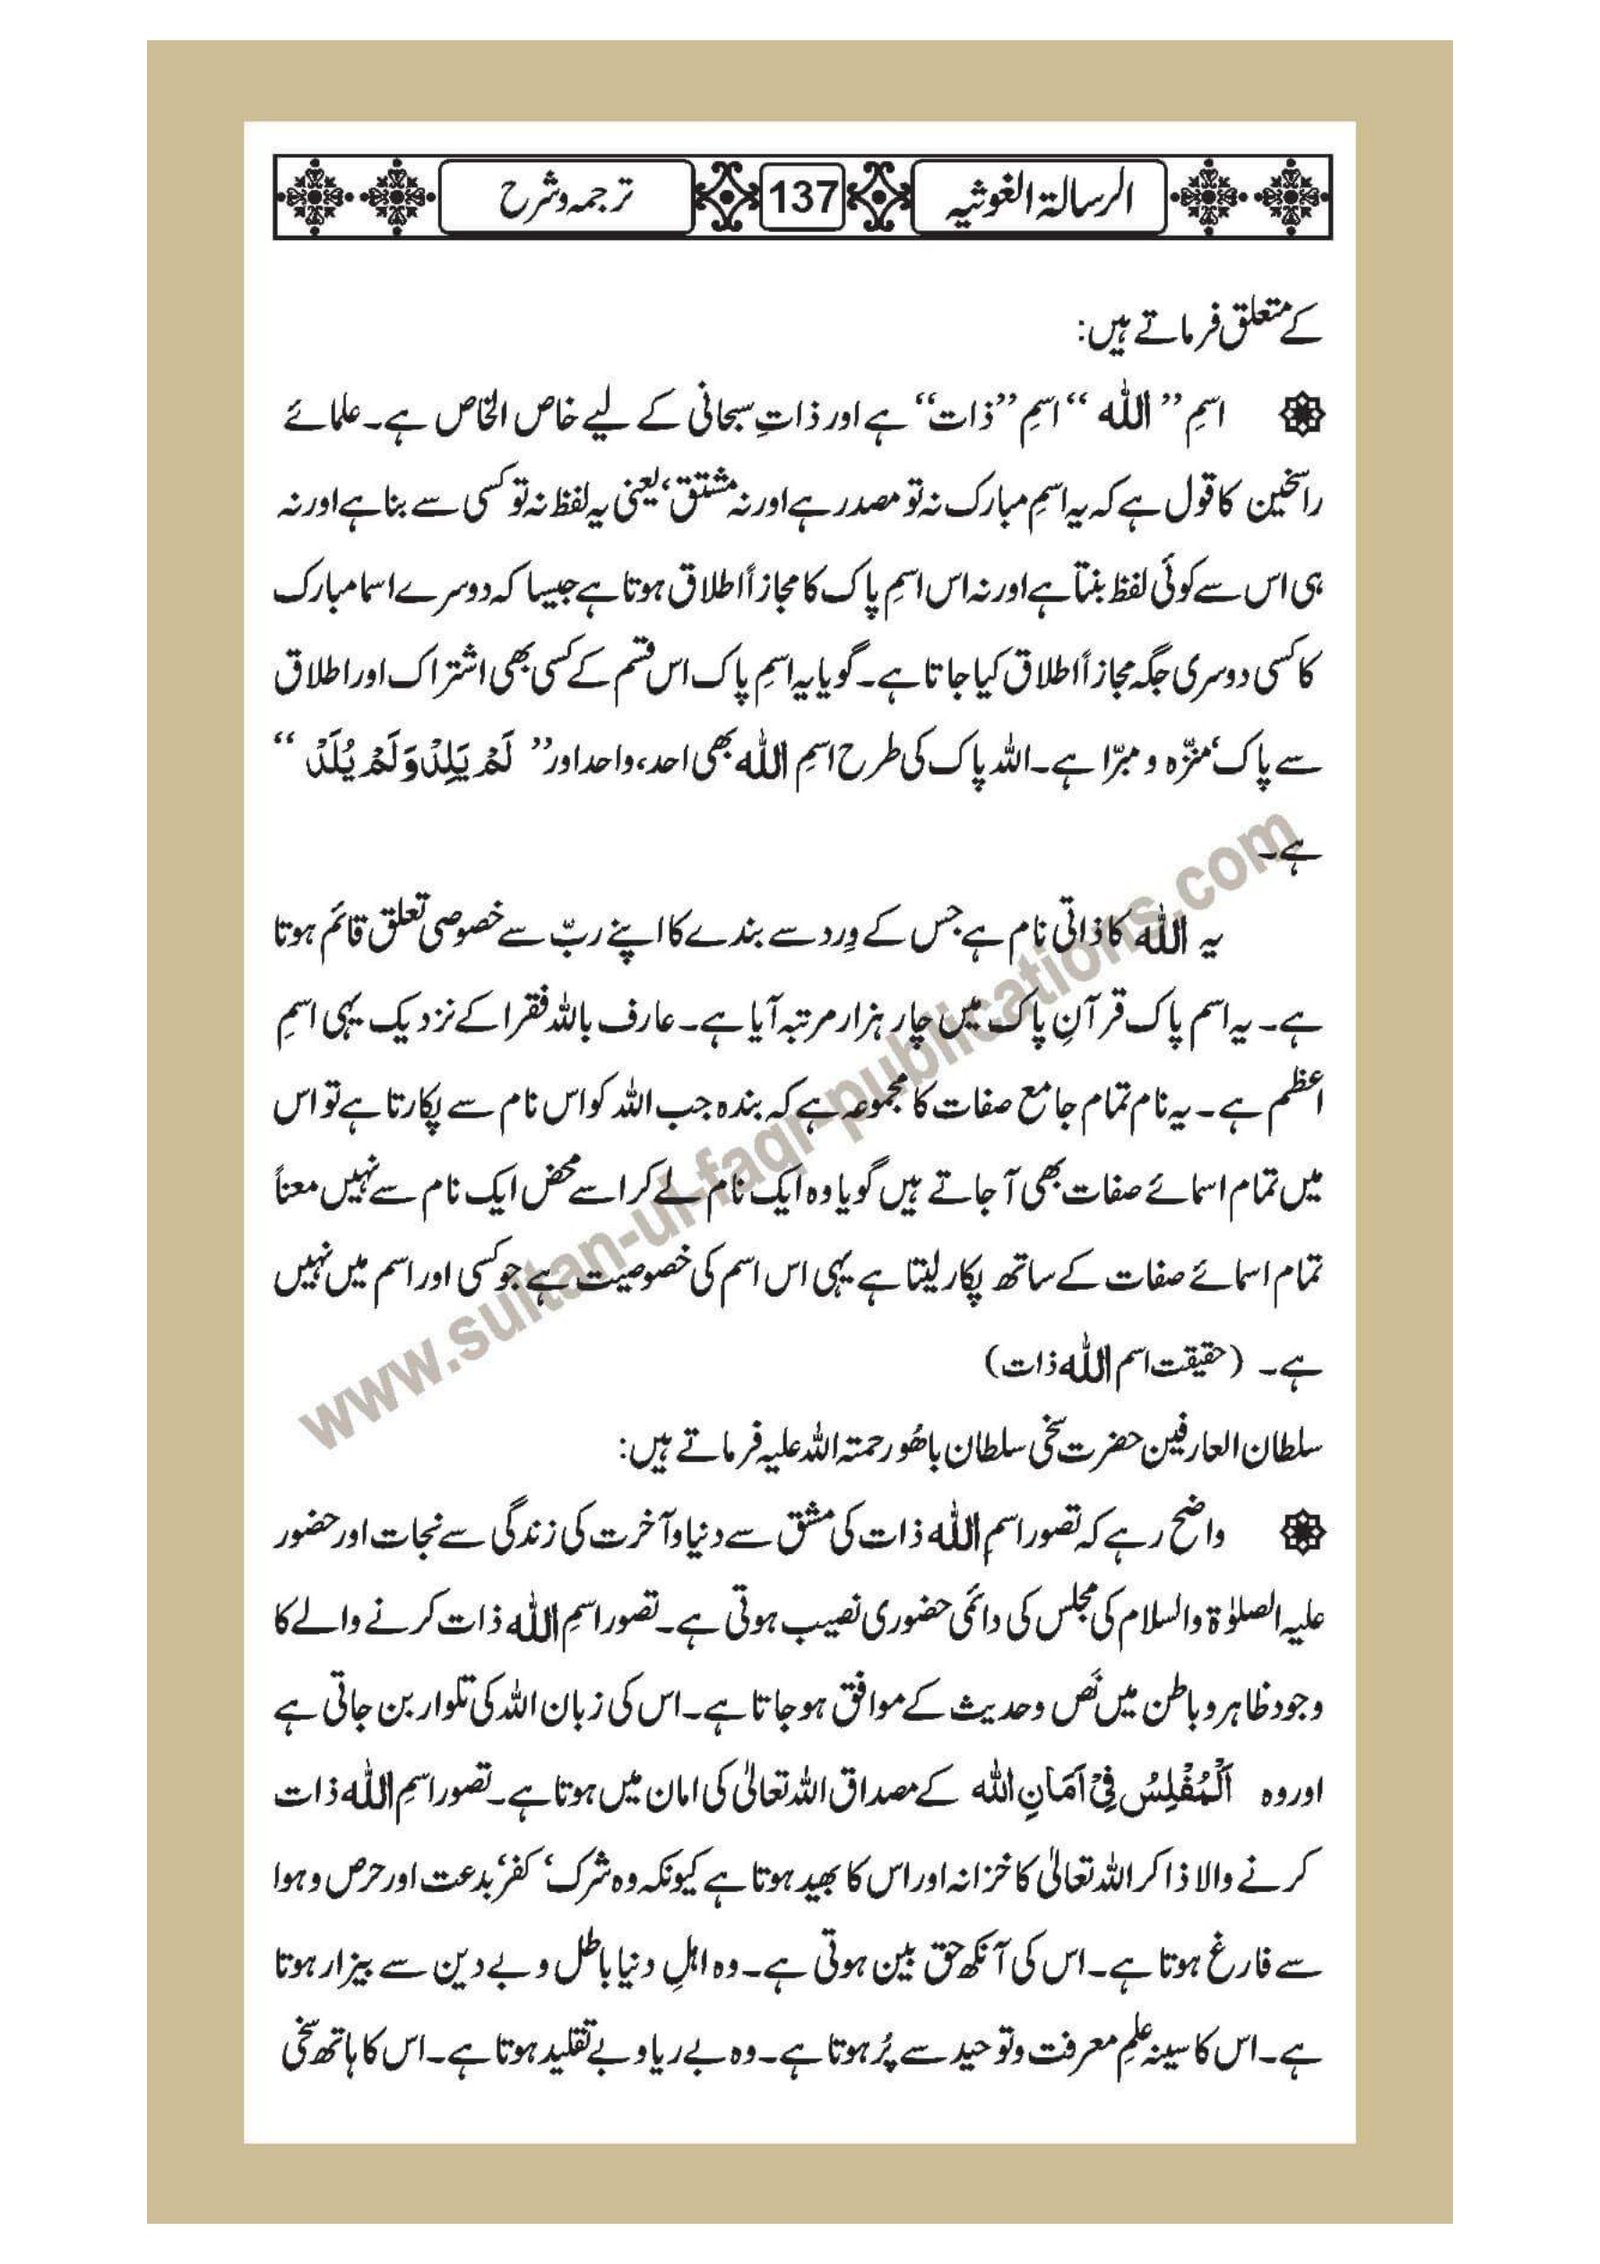 الرسالۃ الغوثیہ 137 ترجمہ و شرح
کے متعلق فرماتے ہیں:
اسمِ ”اللہ“ اسمِ ”ذات“ ہے اور ذاتِ سبحانی کے لیے خاص الخاص ہے۔ علمائے
راسخین کا قول ہے کہ یہ اسمِ مبارک نہ تو مصدر ہے اور نہ مشتق، یعنی یہ لفظ نہ تو کسی سے بنا ہے اور نہ
ہی اس سے کوئی لفظ بنتا ہے اور نہ اس اسمِ پاک کا مجازاً اطلاق ہوتا ہے جیسا کہ دوسرے اسما مبارک
کا کسی دوسری جگہ مجازاً اطلاق کیا جاتا ہے۔ گویا یہ اسمِ پاک اس قسم کے کسی بھی اشتراک اور اطلاق
سے پاک‘ منزّہ و مبرّا ہے۔ اللہ پاک کی طرح اسمِ اللہ بھی احد، واحد اور ”لَمْ یَلِدْ وَلَمْ یُلَدْ“
ہے۔
یہ اللہ کا ذاتی نام ہے جس کے وِرد سے بندے کا اپنے ربّ سے خصوصی تعلق قائم ہوتا
ہے۔ یہ اسم پاک قرآنِ پاک میں چار ہزار مرتبہ آیا ہے۔ عارف باللہ فقرا کے نزدیک یہی اسمِ
اعظم ہے۔ یہ نام تمام جامع صفات کا مجموعہ ہے کہ بندہ جب اللہ کو اس نام سے پکارتا ہے تو اس
میں تمام اسمائے صفات بھی آ جاتے ہیں گویا وہ ایک نام لے کر اسے محض ایک نام سے نہیں معناً
تمام اسمائے صفات کے ساتھ پکار لیتا ہے یہی اس اسم کی خصوصیت ہے جو کسی اور اسم میں نہیں
ہے۔ (حقیقت اسم اللہ ذات)
سلطان العارفین حضرت سخی سلطان باھُو رحمتہ اللہ علیہ فرماتے ہیں:
واضح رہے کہ تصور اسمِ اللہ ذات کی مشق سے دنیا و آخرت کی زندگی سے نجات اور حضور
علیہ الصلوٰۃ والسلام کی مجلس کی دائمی حضوری نصیب ہوتی ہے۔ تصور اسمِ اللہ ذات کرنے والے کا
وجود ظاہر و باطن میں نَص و حدیث کے موافق ہو جاتا ہے۔ اس کی زبان اللہ کی تلوار بن جاتی ہے
اور وہ اَلْمُفْلِسُ فِیْ اَمَانِ اللہ کے مصداق اللہ تعالیٰ کی امان میں ہوتا ہے۔ تصور اسمِ اللہ ذات
کرنے والا ذاکر اللہ تعالیٰ کا خزانہ اور اس کا بھید ہوتا ہے کیونکہ وہ شرک‘ کفر‘ بدعت اور حرص و ہوا
سے فارغ ہوتا ہے۔ اس کی آنکھ حق بین ہوتی ہے۔ وہ اہلِ دنیا باطل و بے دین سے بیزار ہوتا
ہے۔ اس کا سینہ علمِ معرفت و توحید سے پُر ہوتا ہے۔ وہ بے ریا و بے تقلید ہوتا ہے۔ اس کا ہاتھ سخی
www.sultan-ul-faqr-publications.com